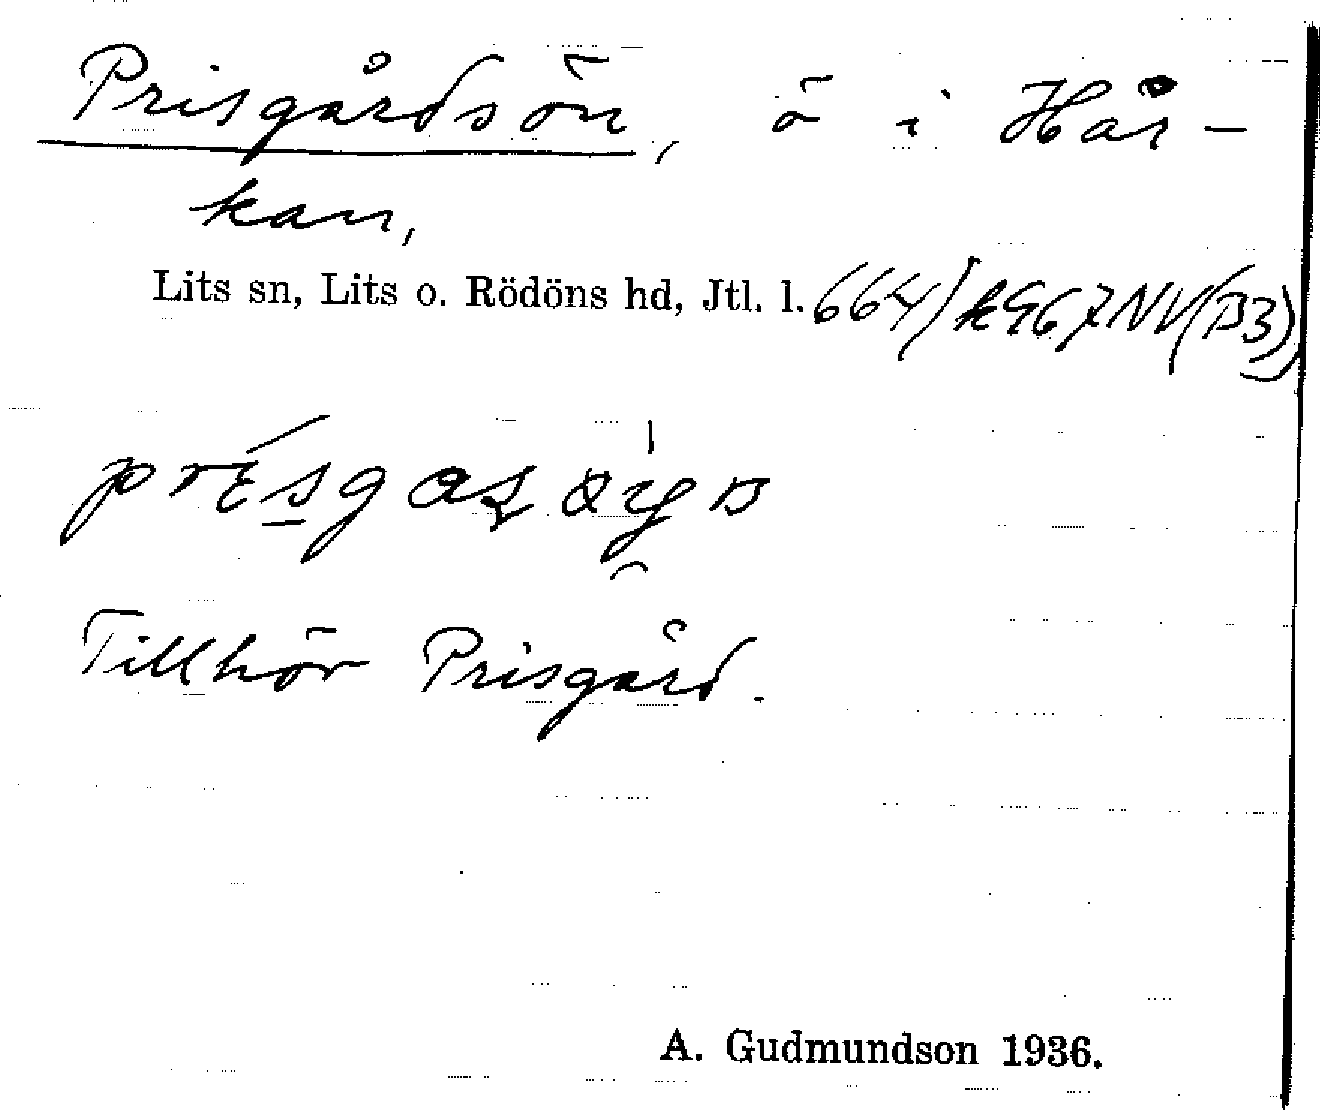 Prisgårdsön, ö i Hår-
kan,
Lits sn, Lits o. Rödöns hd, Jtl. l. 664/k967NV(B3)
Tillhör Prisgård.
A. Gudmundson 1936.